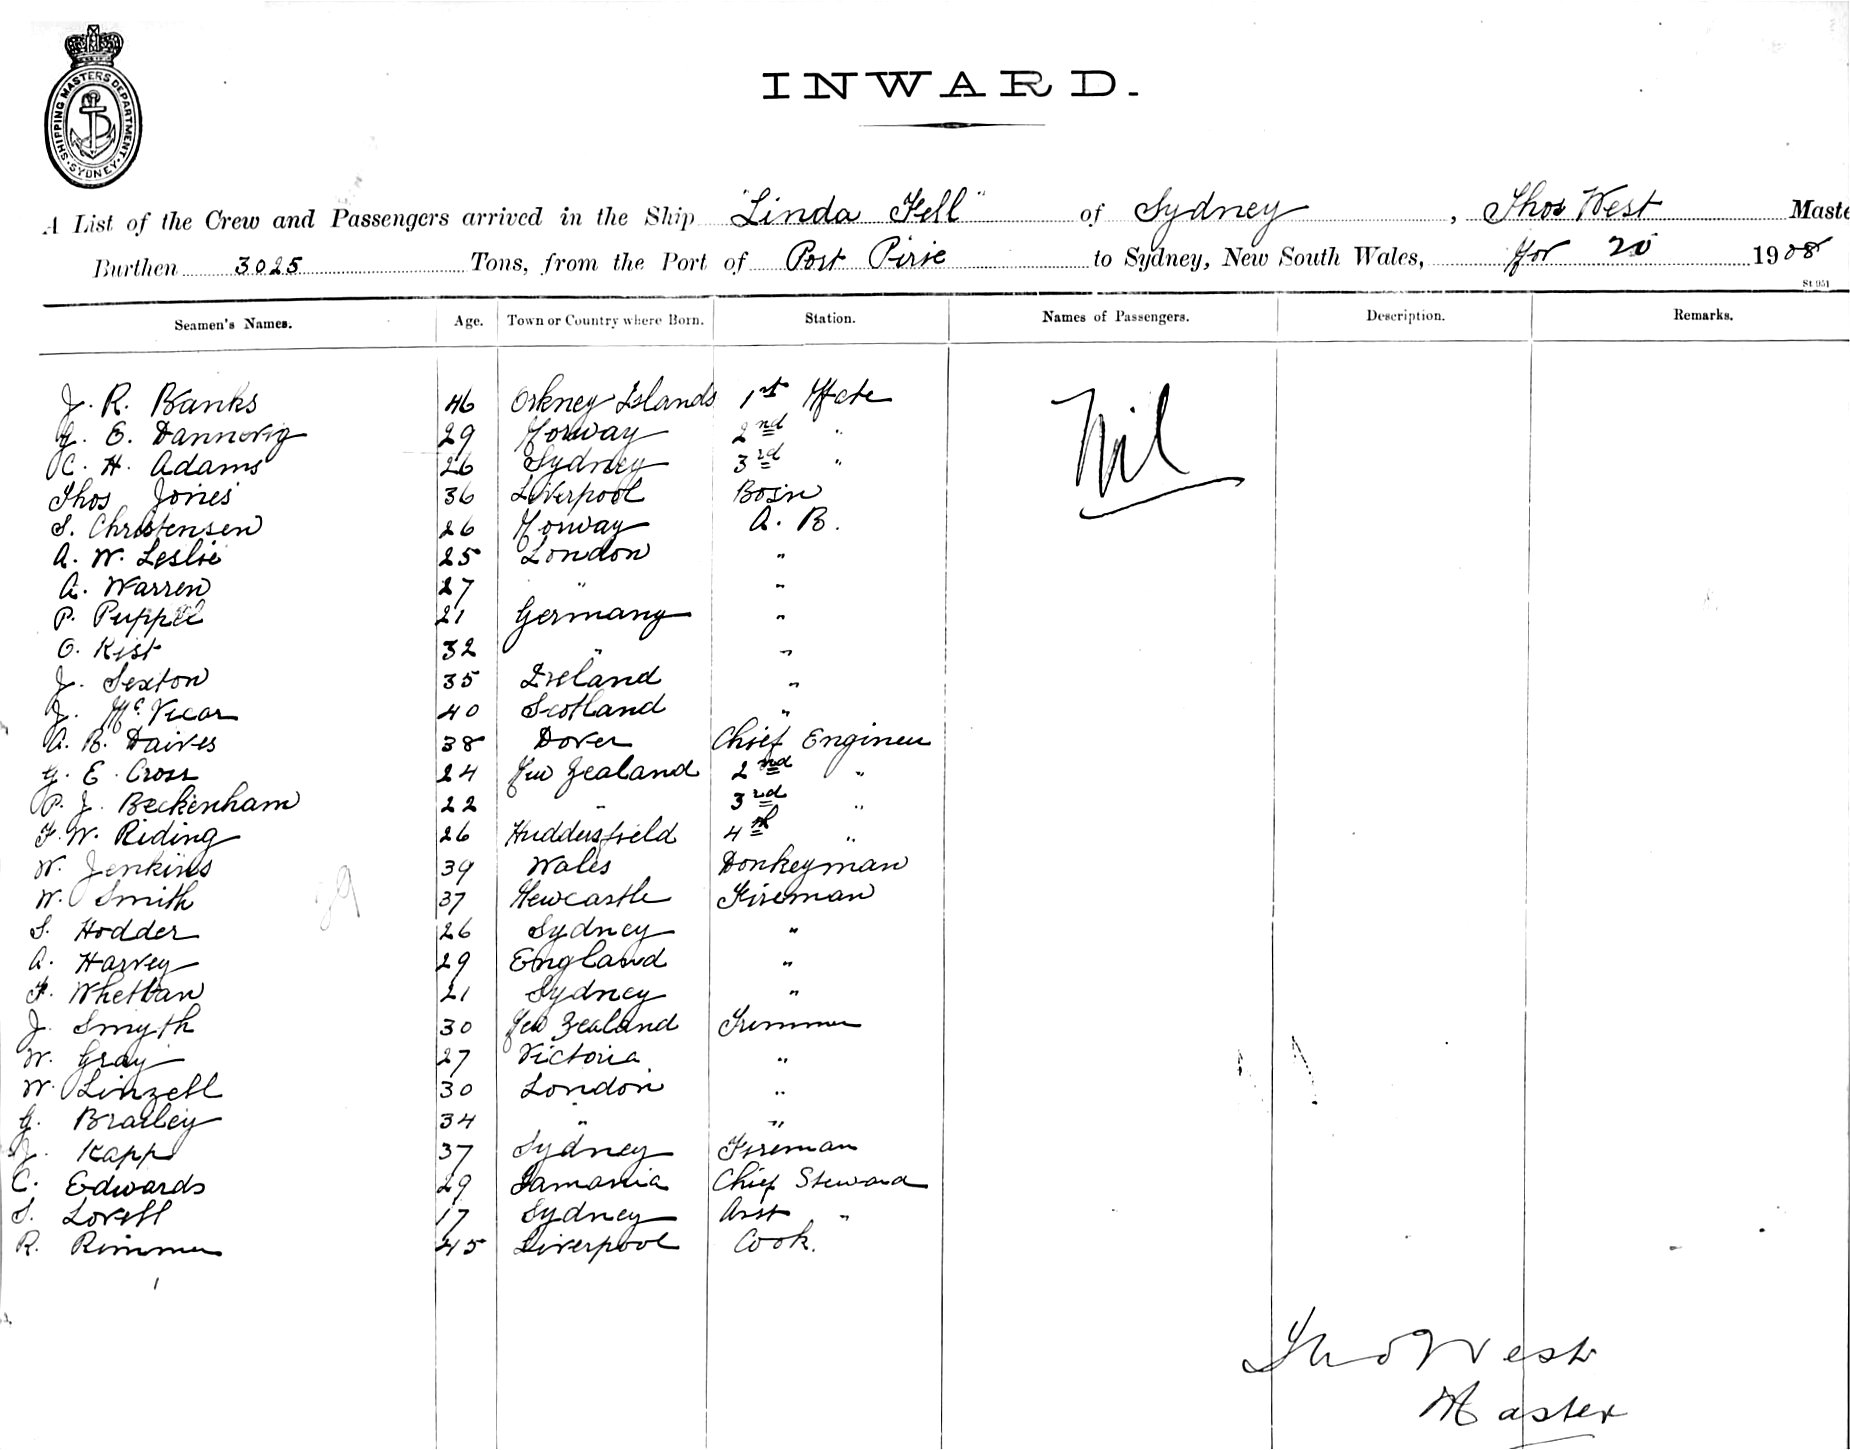 SHIPPING MASTERS DEPARTMENT · SYDNEY ·
INWARD.
A List of the Crew and Passengers arrived in the Ship "Linda Fell" of Sydney, Thos West Maste
Burthen 3025 Tons, from the Port of Port Pirie to Sydney, New South Wales, Nov 20 1908
St 951
Seamen's Names. Age. Town or Country where Born. Station. Names of Passengers. Description. Remarks.
J. R. Banks 46 Orkney Islands 1st Mate Nil
G. E. Dannevig 29 Norway 2nd "
C. H. Adams 26 Sydney 3rd "
Thos Jones 36 Liverpool Bosn
S. Christensen 26 Norway A. B.
A. W. Leslie 25 London "
A. Warren 27 " "
P. 21 Germany "
O. Kist 32 " "
J. Sexton 35 Ireland "
J. McVicar 40 Scotland "
A. B. Daives 38 Dover Chief Engineer
G. E. Cross 24 New Zealand 2nd "
P. J. Beckenham 22 " 3rd "
F. W. Riding 26 Huddersfield 4th "
W. Jenkins 39 Wales Donkeyman
W. Smith 37 Newcastle Fireman
S. Hodder 26 Sydney "
A. Harvey 29 England "
F. Whettan 21 Sydney "
J. Smyth 30 New Zealand Trimmer
W. Gray 27 Victoria "
W. Linzell 30 London "
G. Brailey 34 " "
J. Kapp 37 Sydney Fireman
C. Edwards 29 Tasmania Chief Steward
S. Lovell 17 Sydney Asst "
R. Rimmer 45 Liverpool Cook.
Thos West
Master